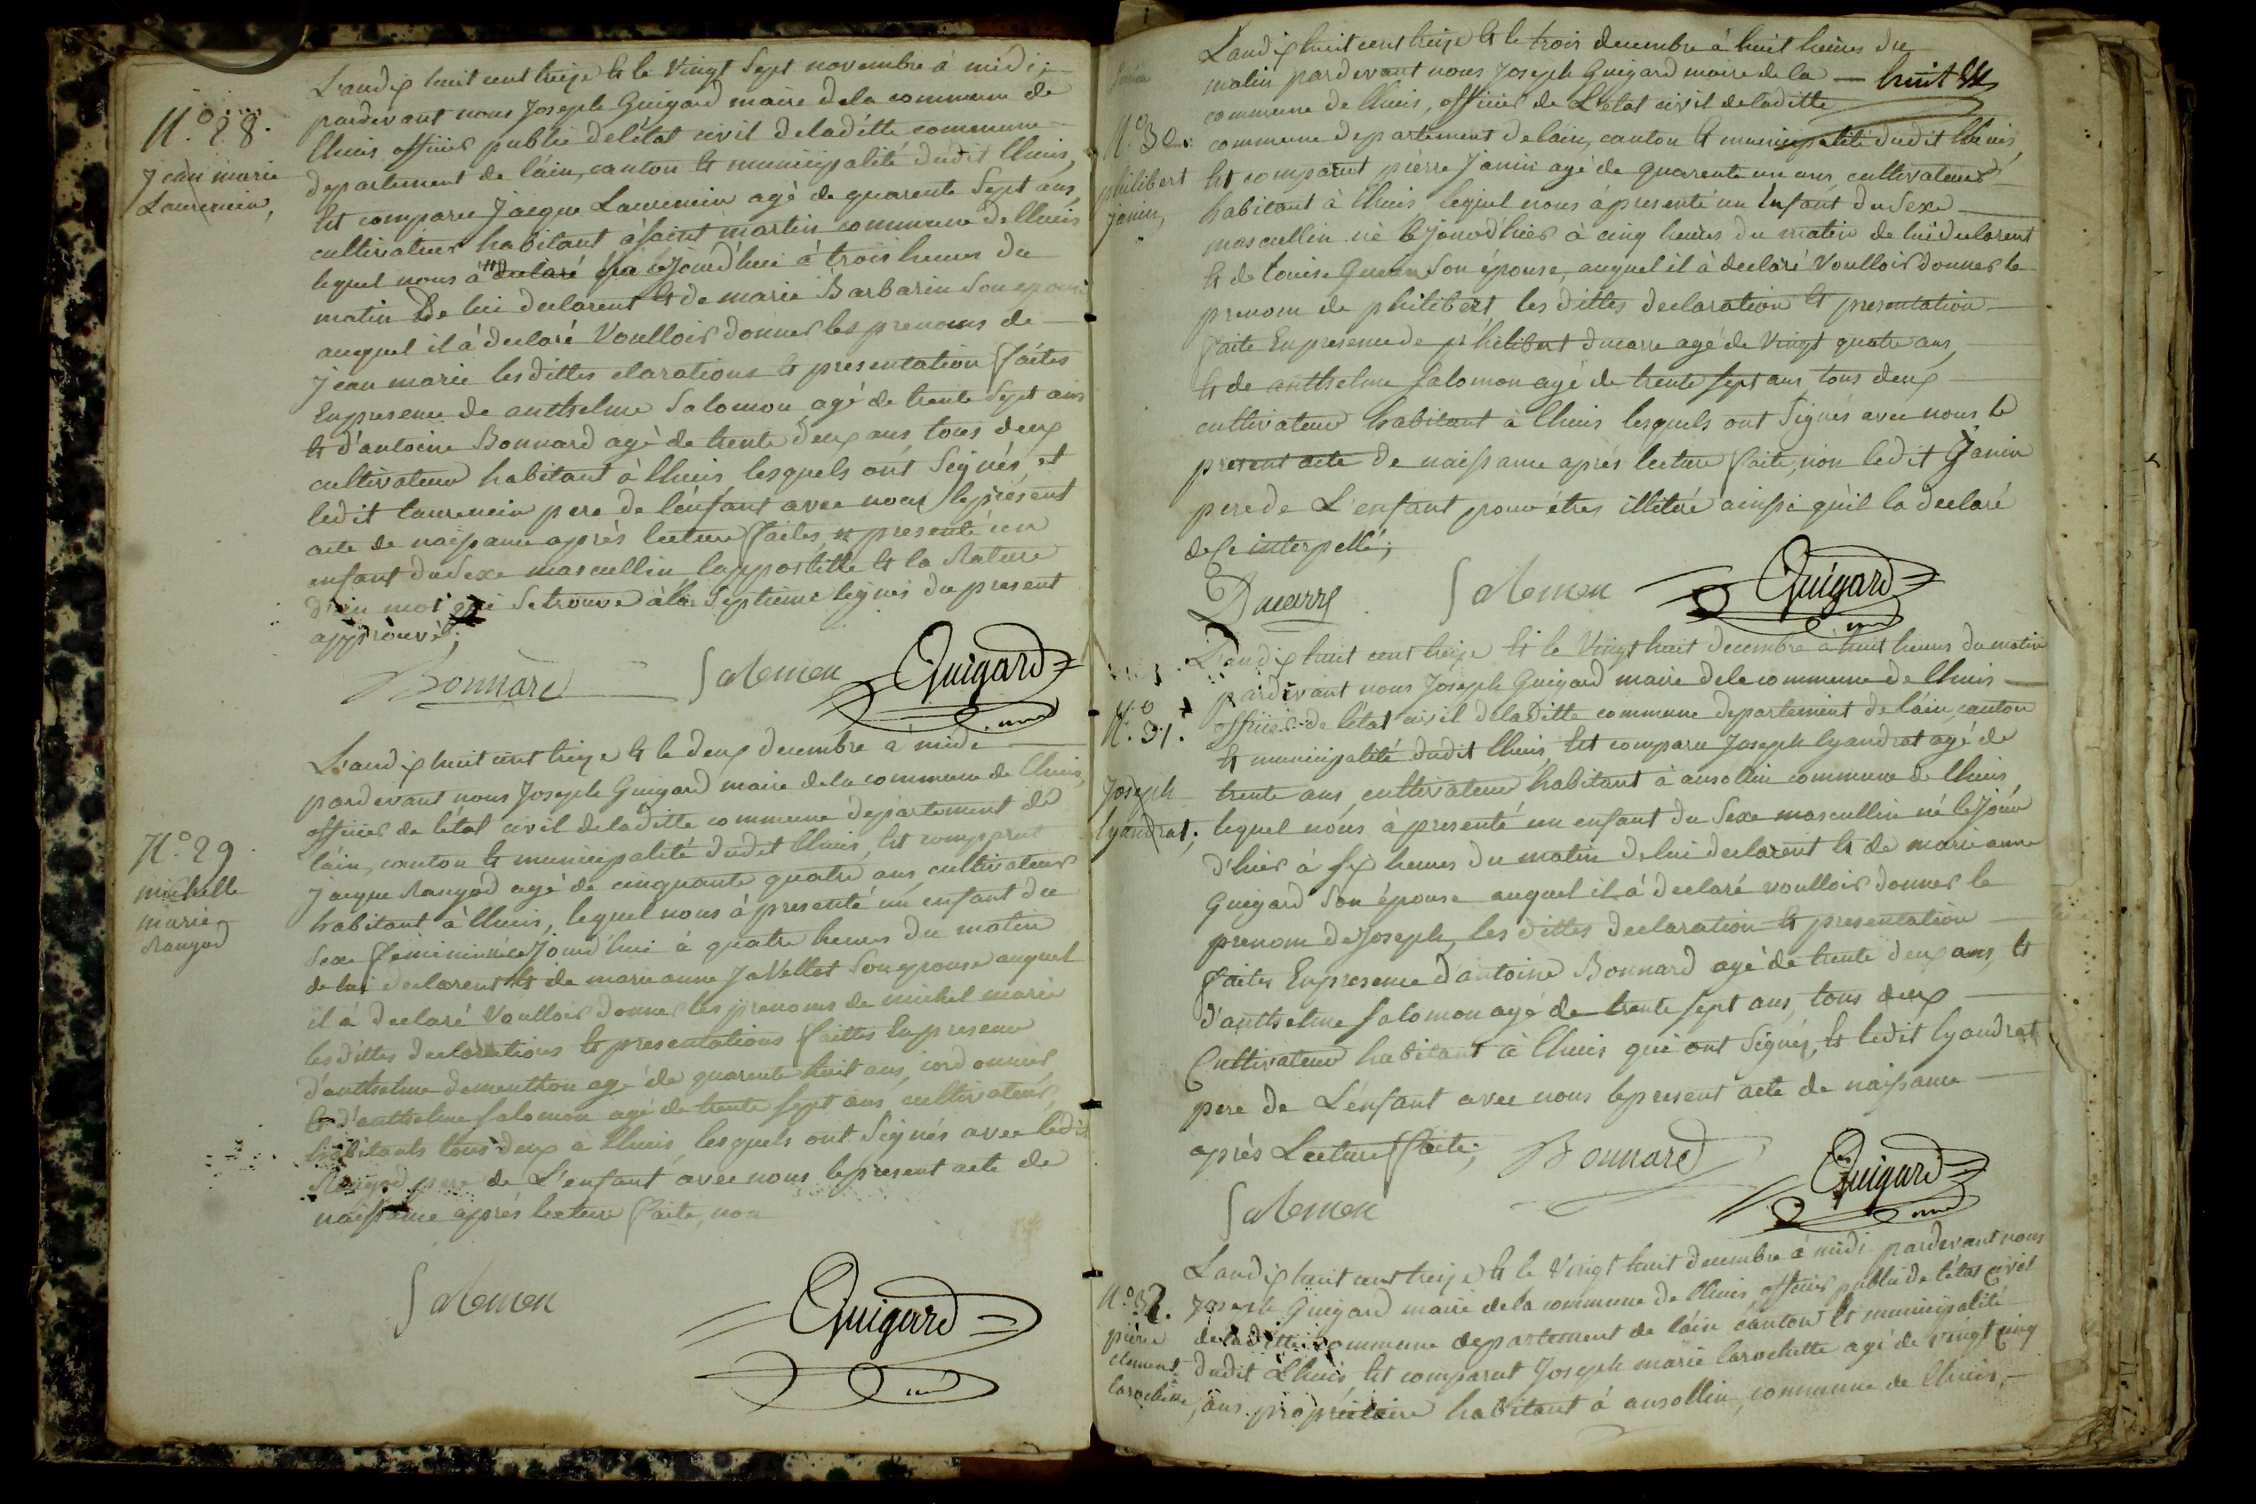 N.° 28.
Jean marie
Laurencin,
L'an dix huit cent treize Et le Vingt Sept novembre à midi;
pardevant nous Joseph Guigard maire dela commune de
Lhuis officier public de l'état civil de laditte commune
departement de l'ain, canton Et municipalité dudit Lhuis,
Est comparu Jacque Laurencin agé de quarente Sept ans,
cultivateur habitant à saint martin commune de Lhuis
lequel nous à declaré cejourd'hui à trois heures du
matin de lui declarent Et de marie Barbarin Son epouse
auquel il à declaré Voulloir donner les prenoms de
Jean marie lesdittes clarations Et presentation faites
En presence de anthelme Salomon agé de trente Sept ans
Et d'antoine Bonnard agé de trente deux ans, tous deux
cultivateur habitant à Lhuis lesquels ont Signés, et
ledit Laurencin pere de l'enfant avec nous le présent
acte de naissance après lecture faites, presenté un
enfant du Sexe mascullin lappostille Et la Rature
d'un mot qui Setrouve à la Septieme lignes du present
approuvé;
Bonnard Salomon Guigard
N.° 29
michelle
marie
Rangod
L'an dix huit cent treize Et le deux decembre à midi
pardevant nous Joseph Guigard maire de la commune de Lhuis,
officier de l'état civil de laditte commune departement de
l'ain, canton Et municipalité dudit Lhuis, Est comparut
Jacque Rangod agé de cinquante quatre ans cultivateur
habitant à Lhuis, lequel nous à presenté un enfant du
Sexe feminin née cejourd'hui à quatre heures du matin
de lui declarent Et de marie anne Javellot Son epouse auquel
il à declaré Voulloir donner les prenoms de michel marie
lesdittes declarations Et presentations faittes En presence
d'anthelme dementhon agé de quarente huit ans, cordonnier,
Et d'anthelme Salomon agé de trente sept ans cultivateur,
habitants tous deux à Lhuis, lesquels ont Signés avec ledit
Rangod pere de L'enfant avec nous le present acte de
naissance après lecture faite, non
Salomon Guigard
L'an dix huit cent treize Et le trois decembre à huit heures du
matin pardevant nous Joseph Guigard maire de la — huit
commune de Lhuis, officier de L'état civil de laditte
N.° 30.
philibert
janin,
commune departement de lain, canton Et municipalité dudit Lhuis,
Est comparut pierre Janin agé de quarente un ans cultivateur
habitant à Lhuis lequel nous à presenté un Enfant du Sexe
mascullin né le jour d'hier à cinq heures du matin de lui declarent
Et de Louise Son épouse, auquel il à declaré Voulloir donner le
prenom de philibert, les dittes declaration Et presentation
faite En presence de philibert ducarre agé de Vingt quatre ans,
Et de anthelme Salomon agé de trente sept ans, tous deux
cultivateur habitant à Lhuis lesquels ont Signés avec nous le
present acte de naissance après lecture faite, non ledit Janin
pere de L'enfant pour être illitéré ainssi qu'il la declaré
de ce interpellé;
Ducarre Salomon Guigard
N.° 31.
Joseph
lyandrat,
L'an dix huit cent treize Et le Vingt huit decembre à huit heures du matin
pardevant nous Joseph Guigard maire de la commune de Lhuis
officier de l'état civil de laditte commune departement de l'ain, canton
Et municipalité dudit Lhuis, Est comparu Joseph lyandrat agé de
trente ans, cultivateur habitant à ansollin commune de Lhuis,
lequel nous à presenté un enfant du Sexe mascullin né le jour
d'hier à six heures du matin de lui declarent Et de marie anne
Guigard Son épouse auquel il à declaré voulloir donner le
prenom de Joseph, les dittes declaration Et presentation
faites En presence d'antoine Bonnard agé de trente deux ans, Et
d'anthelme Salomon agé de trente sept ans, tous deux
Cultivateur habitant à Lhuis qui ont Signés, Et ledit lyandrat
pere de L'enfant avec nous le present acte de naissance
après Lecture faite; Bonnard
Salomon Guigard
N.° 32.
pierre
clement
larochette,
L'an dix huit cent treize Et le Vingt huit decembre à midi pardevant nous
Joseph Guigard maire de la commune de Lhuis officier public de l'état civil
de laditte commune departement de l'ain canton Et municipalité
dudit Lhuis Est comparut Joseph marie larochette agé de vingt cinq
ans, propriétaire habitant à ansollin, commune de Lhuis,